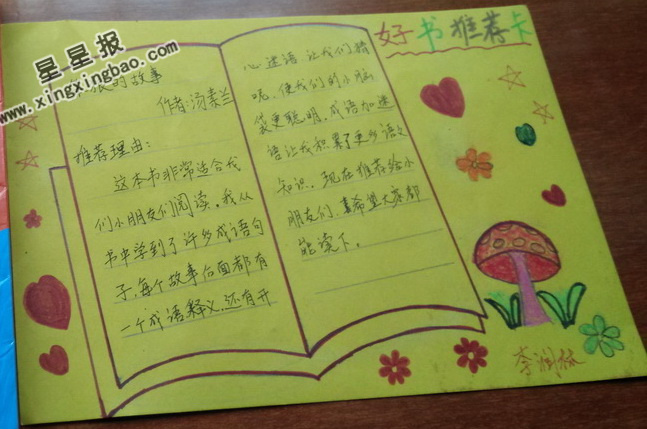 好书推荐卡
星星报
www.xingxingbao.com
狼的故事
作者:汤素兰
推荐理由:
这本书非常适合我
们小朋友们阅读。我从
书中学到了许多成语句
子,每个故事后面都有
一个成语释义,还有开
心迷语,让我们猜
呢,使我们的小脑
袋更聪明。成语加迷
语让我积累了更多语文
知识。现在推荐给小
朋友们,希望大家都
能读下。